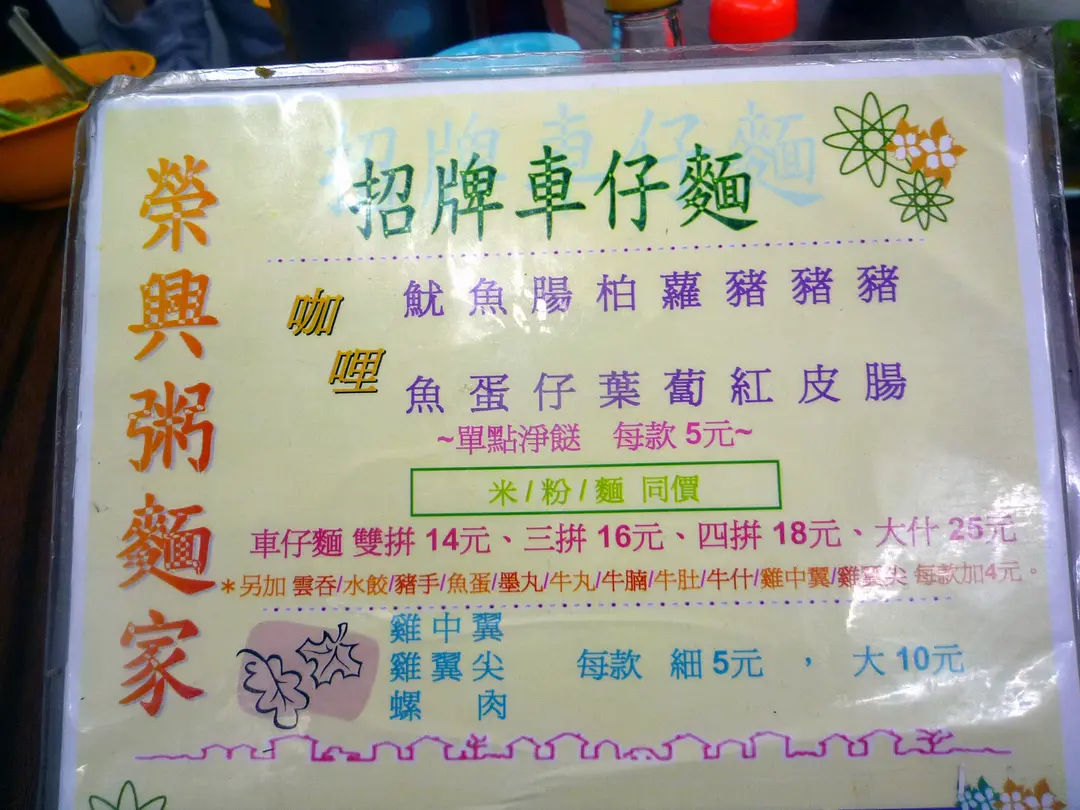 榮興粥麵家
招牌車仔麵
咖哩
魷魚腸柏蘿豬豬豬
魚蛋仔葉蔔紅皮腸
~單點淨餸 每款 5元~
米 / 粉 / 麵 同價
車仔麵 雙拼 14元、三拼 16元、四拼 18元、大什 25元
*另加 雲吞/水餃/豬手/魚蛋/墨丸/牛丸/牛腩/牛肚/牛什/雞中翼/雞翼尖 每款加4元。
雞中翼
雞翼尖 每款 細 5元 , 大 10元
螺肉